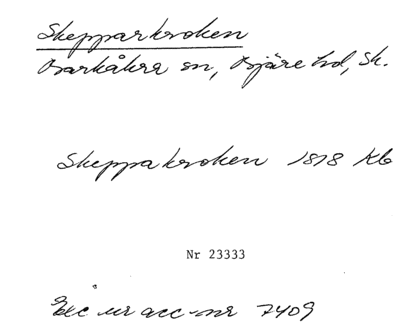 Skepparkroken
Barkåkra sn, Bjäre hd, Sk.
Skeppakroken 1818 Kb
Nr 23333
Exc ur acc-nr 7409